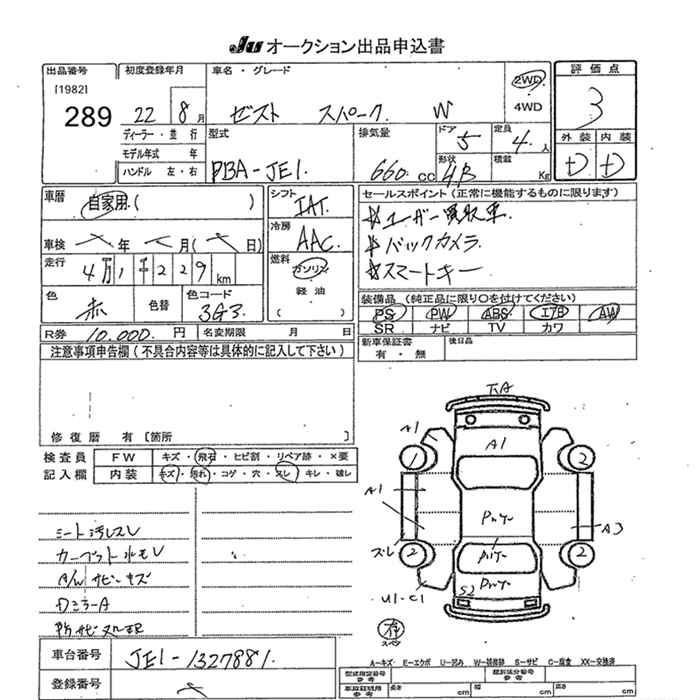 JU オークション出品申込書
出品番号
[1982]
289
初度登録年月
22 8月
ディーラー・並行
モデル年式 年
ハンドル 左・右
車名・グレード
ゼスト スパーク W
2WD
4WD
型式
DBA-JE1
排気量
660 cc
ドア
5
定員
4人
形状
4B
積載
Kg
評価点
3
外装 内装
D D
車歴
自家用( )
車検 年 月( 日)
走行
4万1千229km
色
赤
色替
色コード
3G3
シフト
IAT
冷房
AAC
燃料
ガソリン
軽油
( )
セールスポイント(正常に機能するものに限ります)
☆ユーザー買取車
☆バックカメラ
☆スマートキー
装備品(純正品に限り○を付けてください)
PS PW ABS エアB AW
SR ナビ TV カワ
R券 10,000 円 名変期限 月 日
新車保証書
有・無
後日品
注意事項申告欄(不具合内容等は具体的に記入して下さい)
修復歴 有〔箇所 〕
検査員
記入欄
FW キズ・飛石・ヒビ割・リペア跡・×要
内装 キズ・汚れ・コゲ・穴・スレ・キレ・破レ
シート汚レスレ
A/W サビキズ
DミラーA
下A
A1
A1
1
2
A1
A3
スレ
2
2
U1-C1
S2
A-キズ E-エクボ U-凹み W-補修跡 S-サビ C-腐食 XX-交換済
車台番号
JE1-1327881
登録番号
型式指定番号
参考
類別区分番号
参考
長さ cm 幅 cm 高さ cm